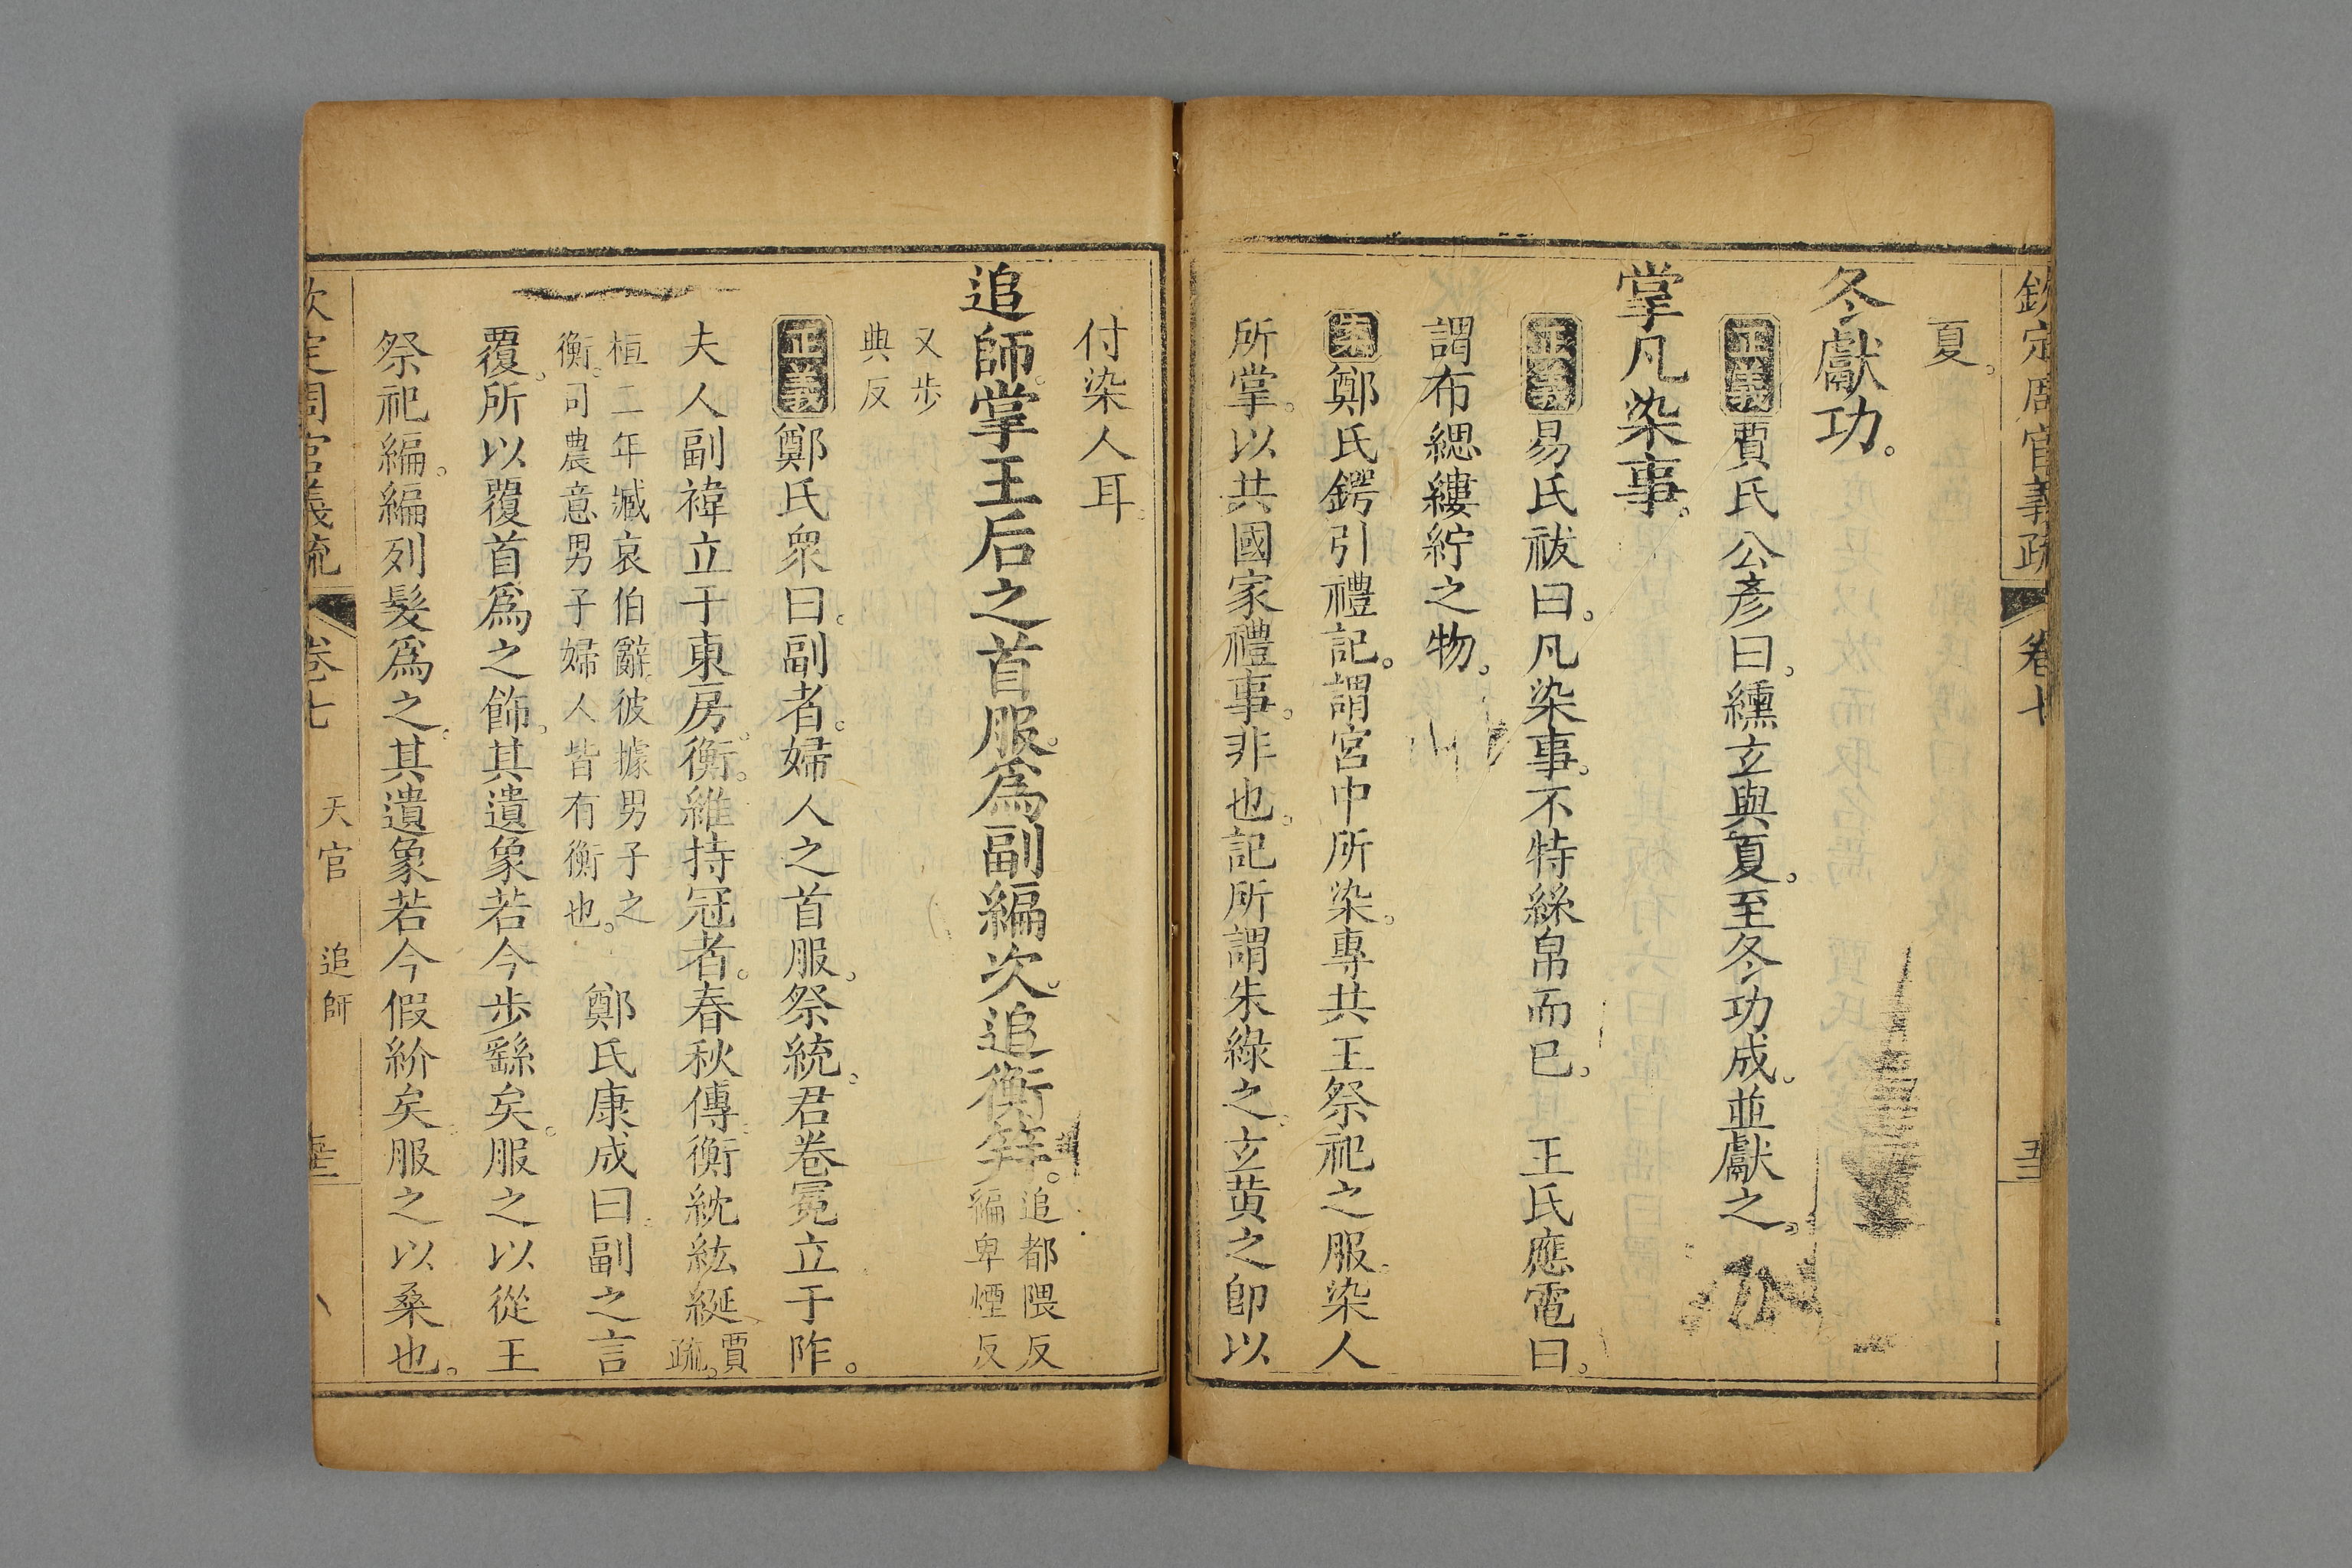 欽定周官義疏 卷七
夏。
冬獻功。
正義 賈氏公彥曰。纁玄與夏。至冬功成。並獻之。
掌凡染事。
正義 易氏祓曰。凡染事。不特絲帛而已。 王氏應電曰。
謂布緦縷紵之物。
案 鄭氏鍔引禮記。謂宮中所染。專共王祭祀之服。染人
所掌。以共國家禮事。非也。記所謂朱綠之。玄黃之。卽以
付染人耳。
追師。掌王后之首服。爲副編次。追衡筓。追都隈反 編卑煙反
又步典反
正義 鄭氏衆曰。副者。婦人之首服。祭統。君卷冕立于阼。
夫人副褘立于東房。衡。維持冠者。春秋傳。衡紞紘綖 賈疏。
桓二年臧哀伯辭。彼據男子之衡。司農意男子婦人皆有衡也。 鄭氏康成曰。副之言
覆。所以覆首爲之飾。其遺象若今步繇矣。服之以從王
祭祀。編。編列髮爲之。其遺象若今假紒矣。服之以桑也。
欽定周官義疏 卷七 天官 追師